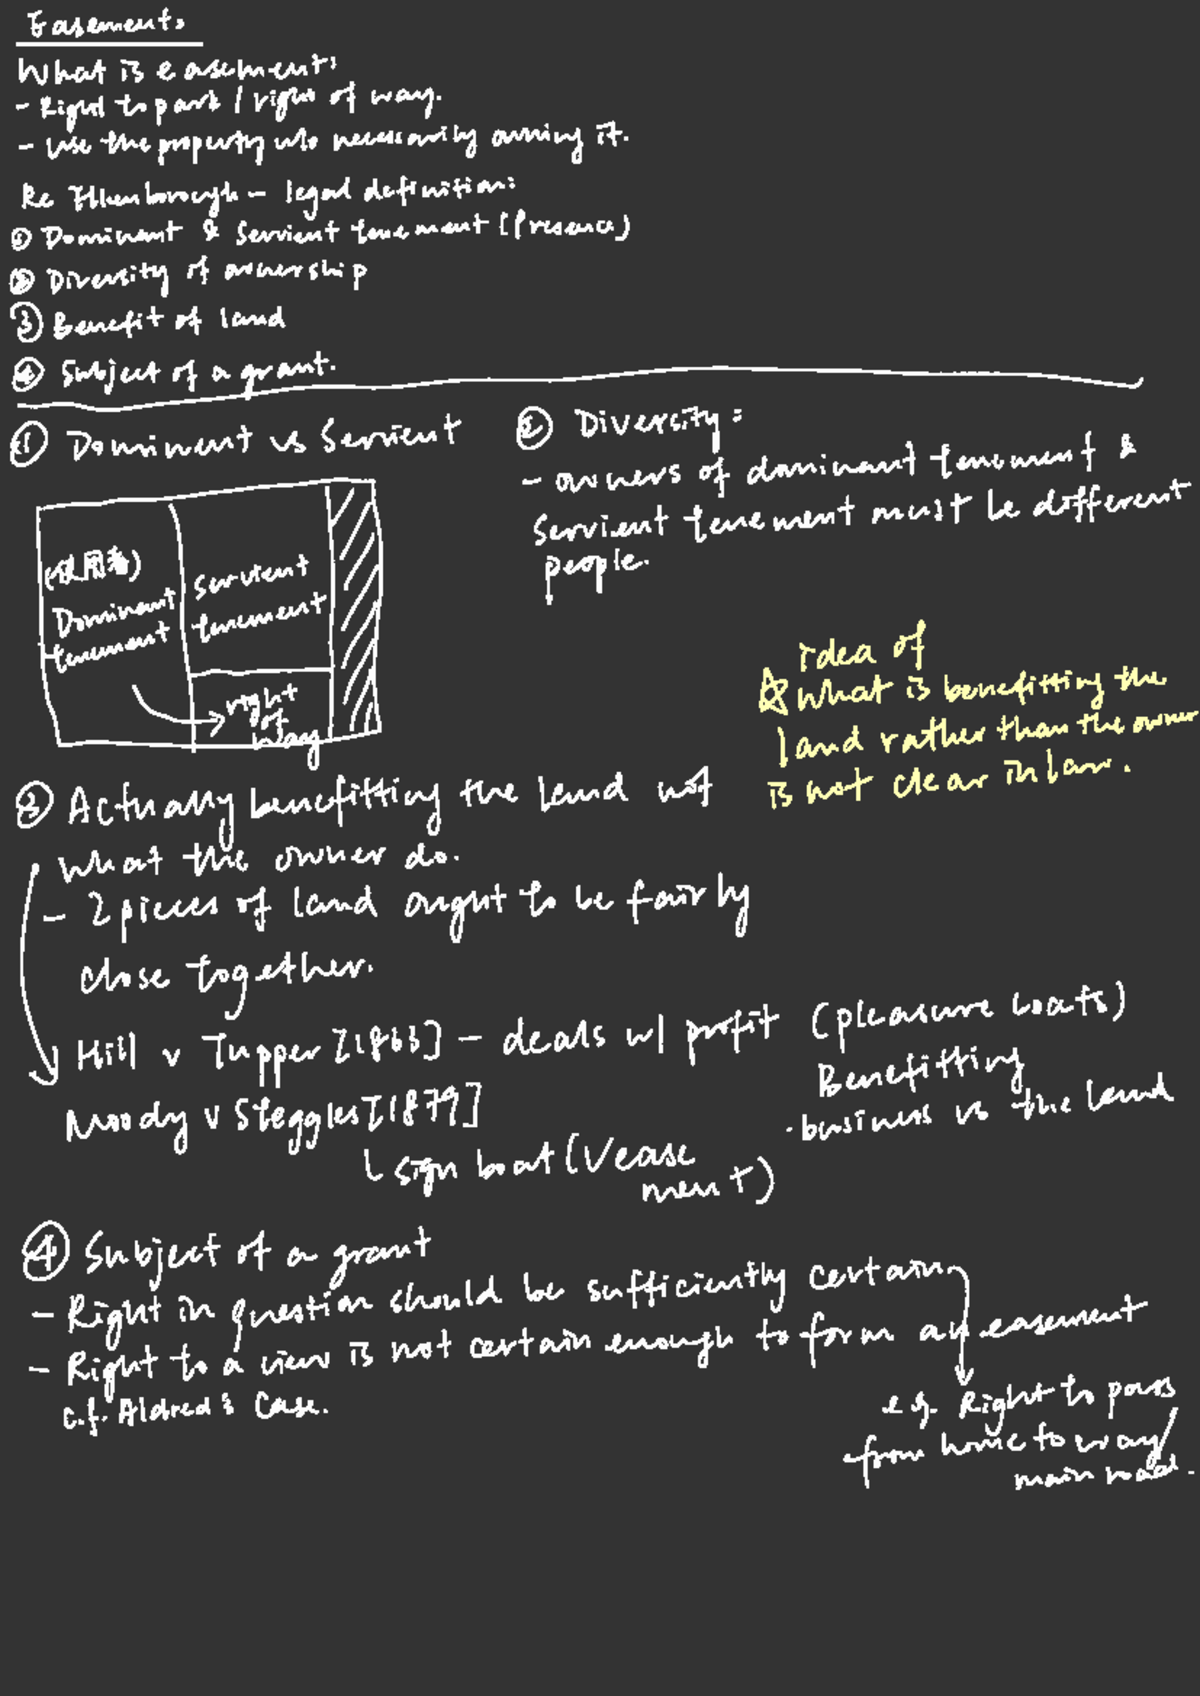 Easements
What is easement:
- Right to park / right of way.
- Use the property w/o necessarily owning it.
Re Ellenborough - legal definition:
① Dominant & Servient tenement (Presence)
② Diversity of ownership
③ Benefit of land
④ Subject of a grant.
① Dominent vs Servient
(使用者)
Dominant
tenement
servient
tenement
right
of
way
② Diversity:
- owners of dominant tenement &
servient tenement must be different
people.
idea of
☆ what is benefitting the
land rather than the owner
is not clear in law.
③ Actually benefitting the land not
what the owner do.
- 2 pieces of land ought to be fairly
close together.
Hill v Tupper [1863] - deals w/ profit (pleasure boats)
Benefitting
business vs the land
Moody v Steggles [1879]
sign boat (V ease
ment)
④ Subject of a grant
- Right in question should be sufficiently certain
- Right to a view is not certain enough to form an easement
c.f. Aldred's Case.
e.g. Right to pass
from home to way/
main road.